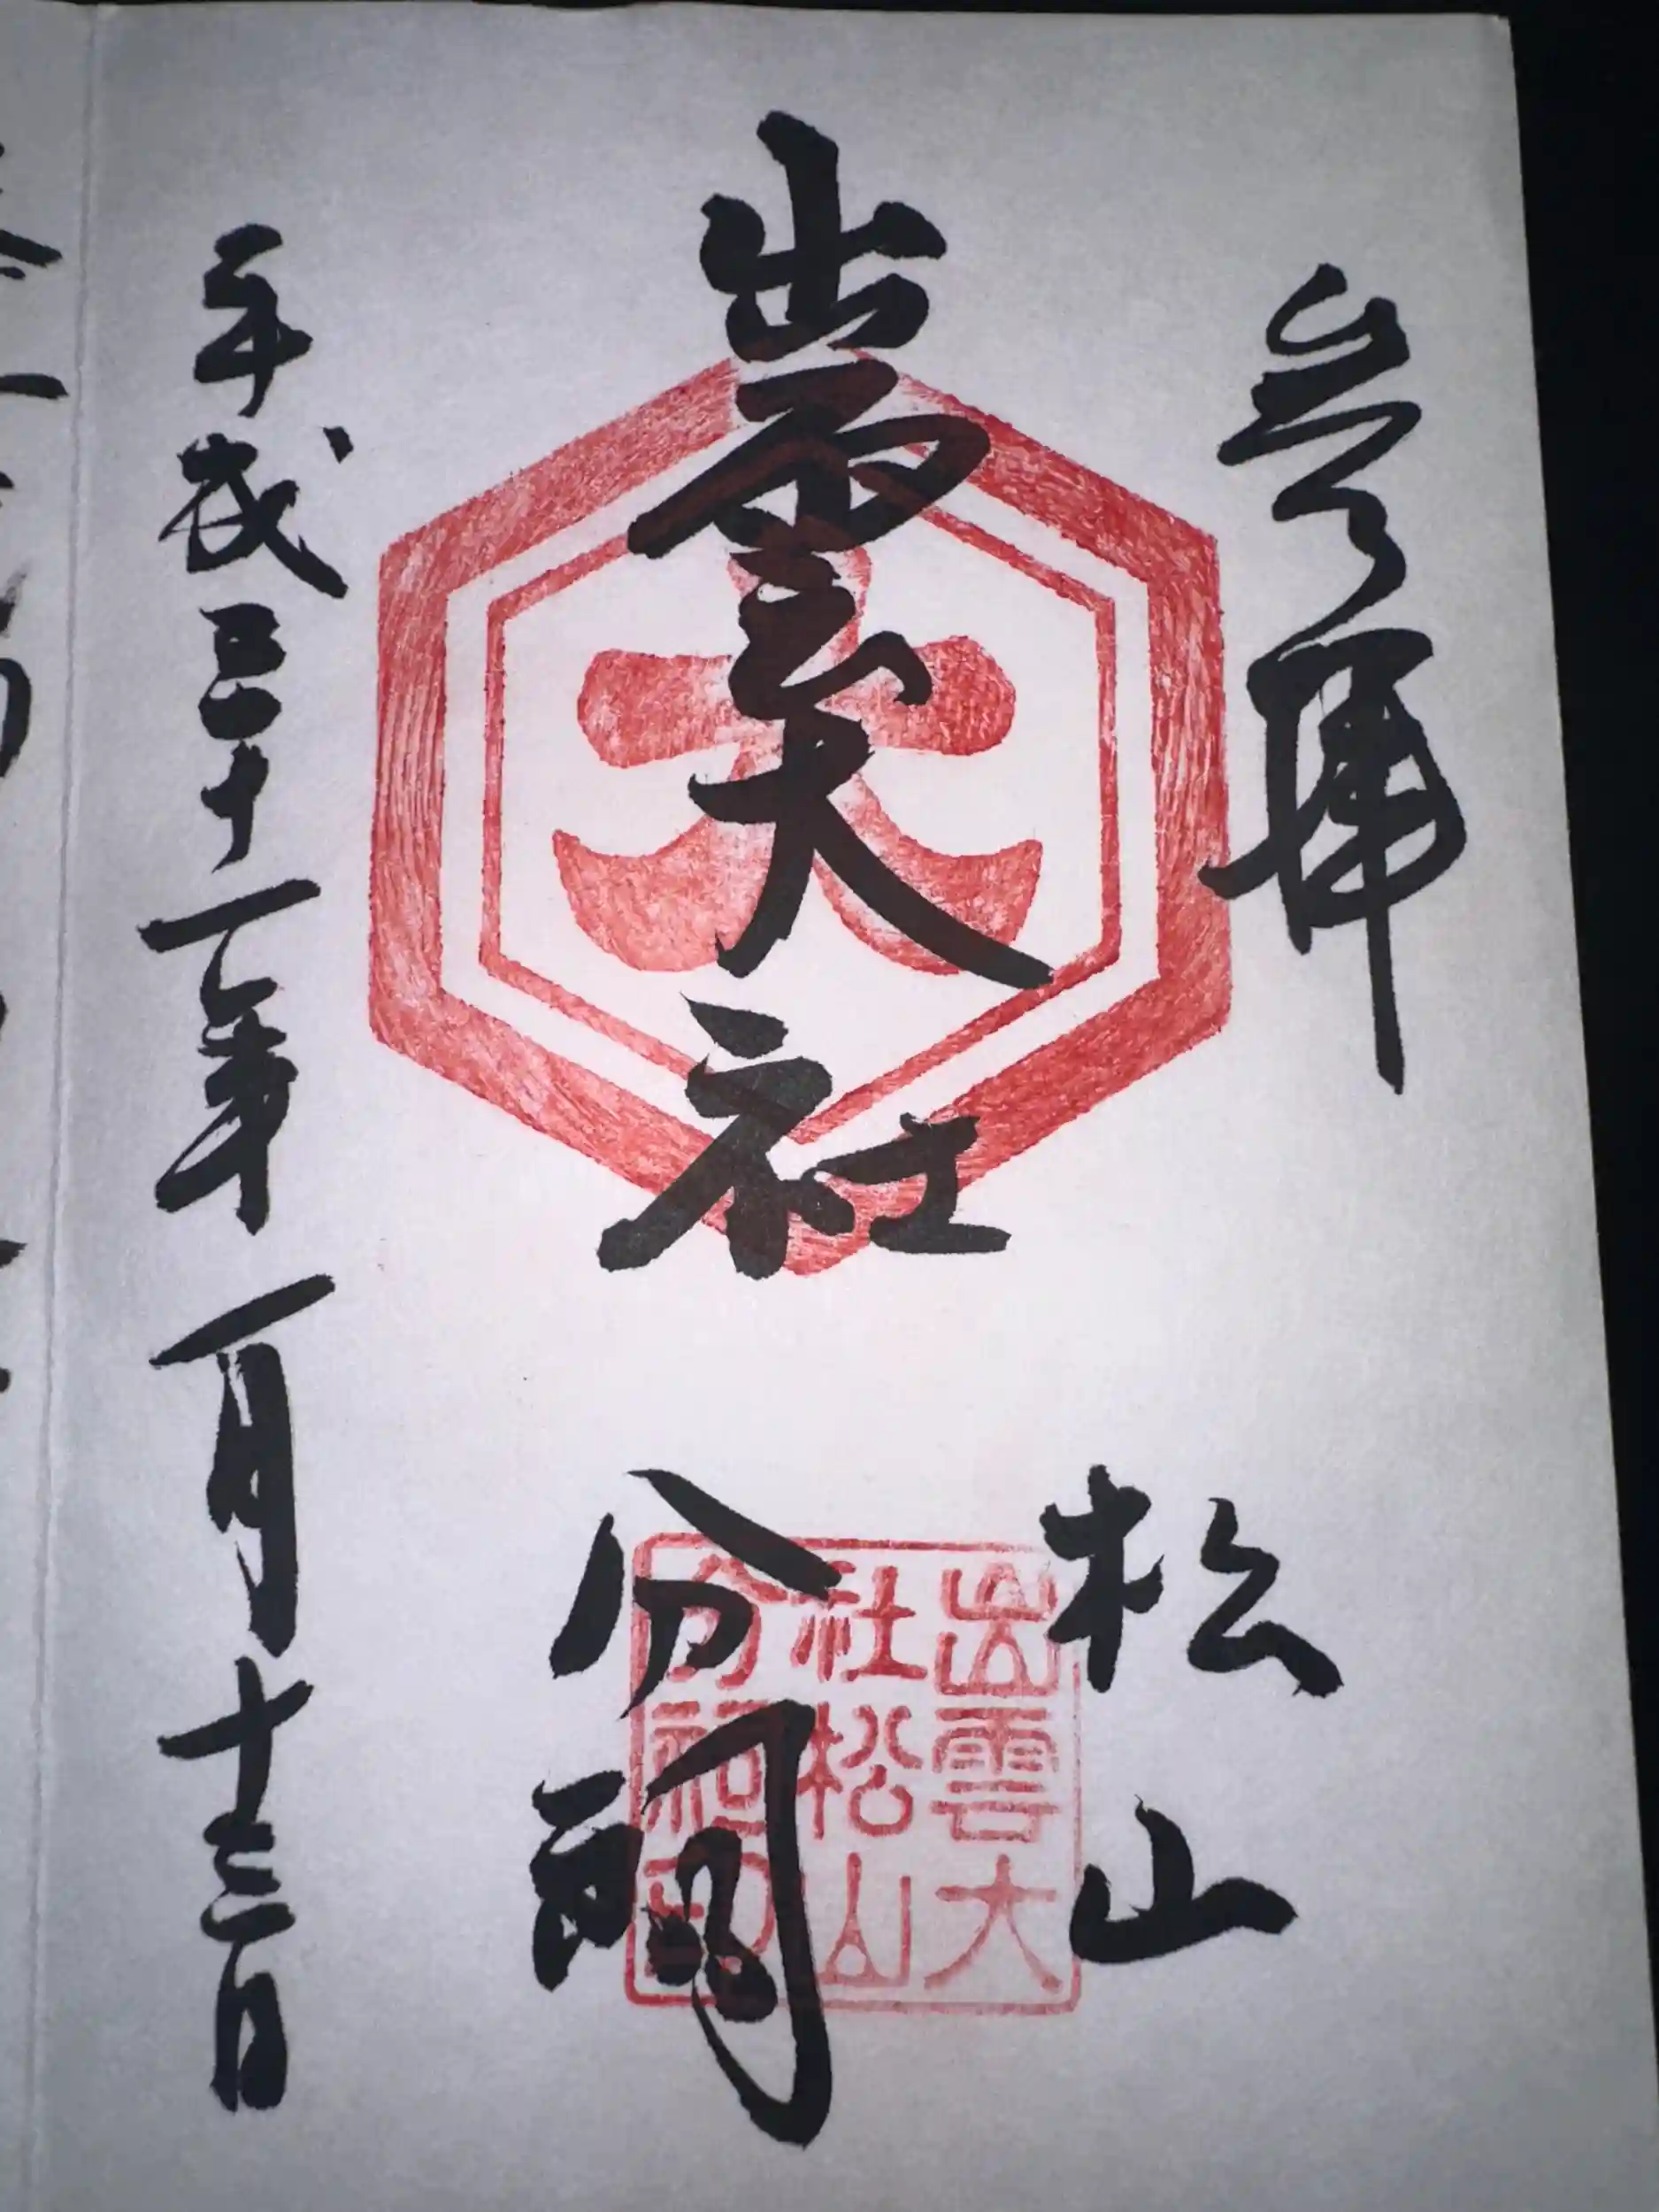 參拜
出雲大社
松山
分祠
平成三十一年一月十三日
大
出雲大
社松山
分祠印